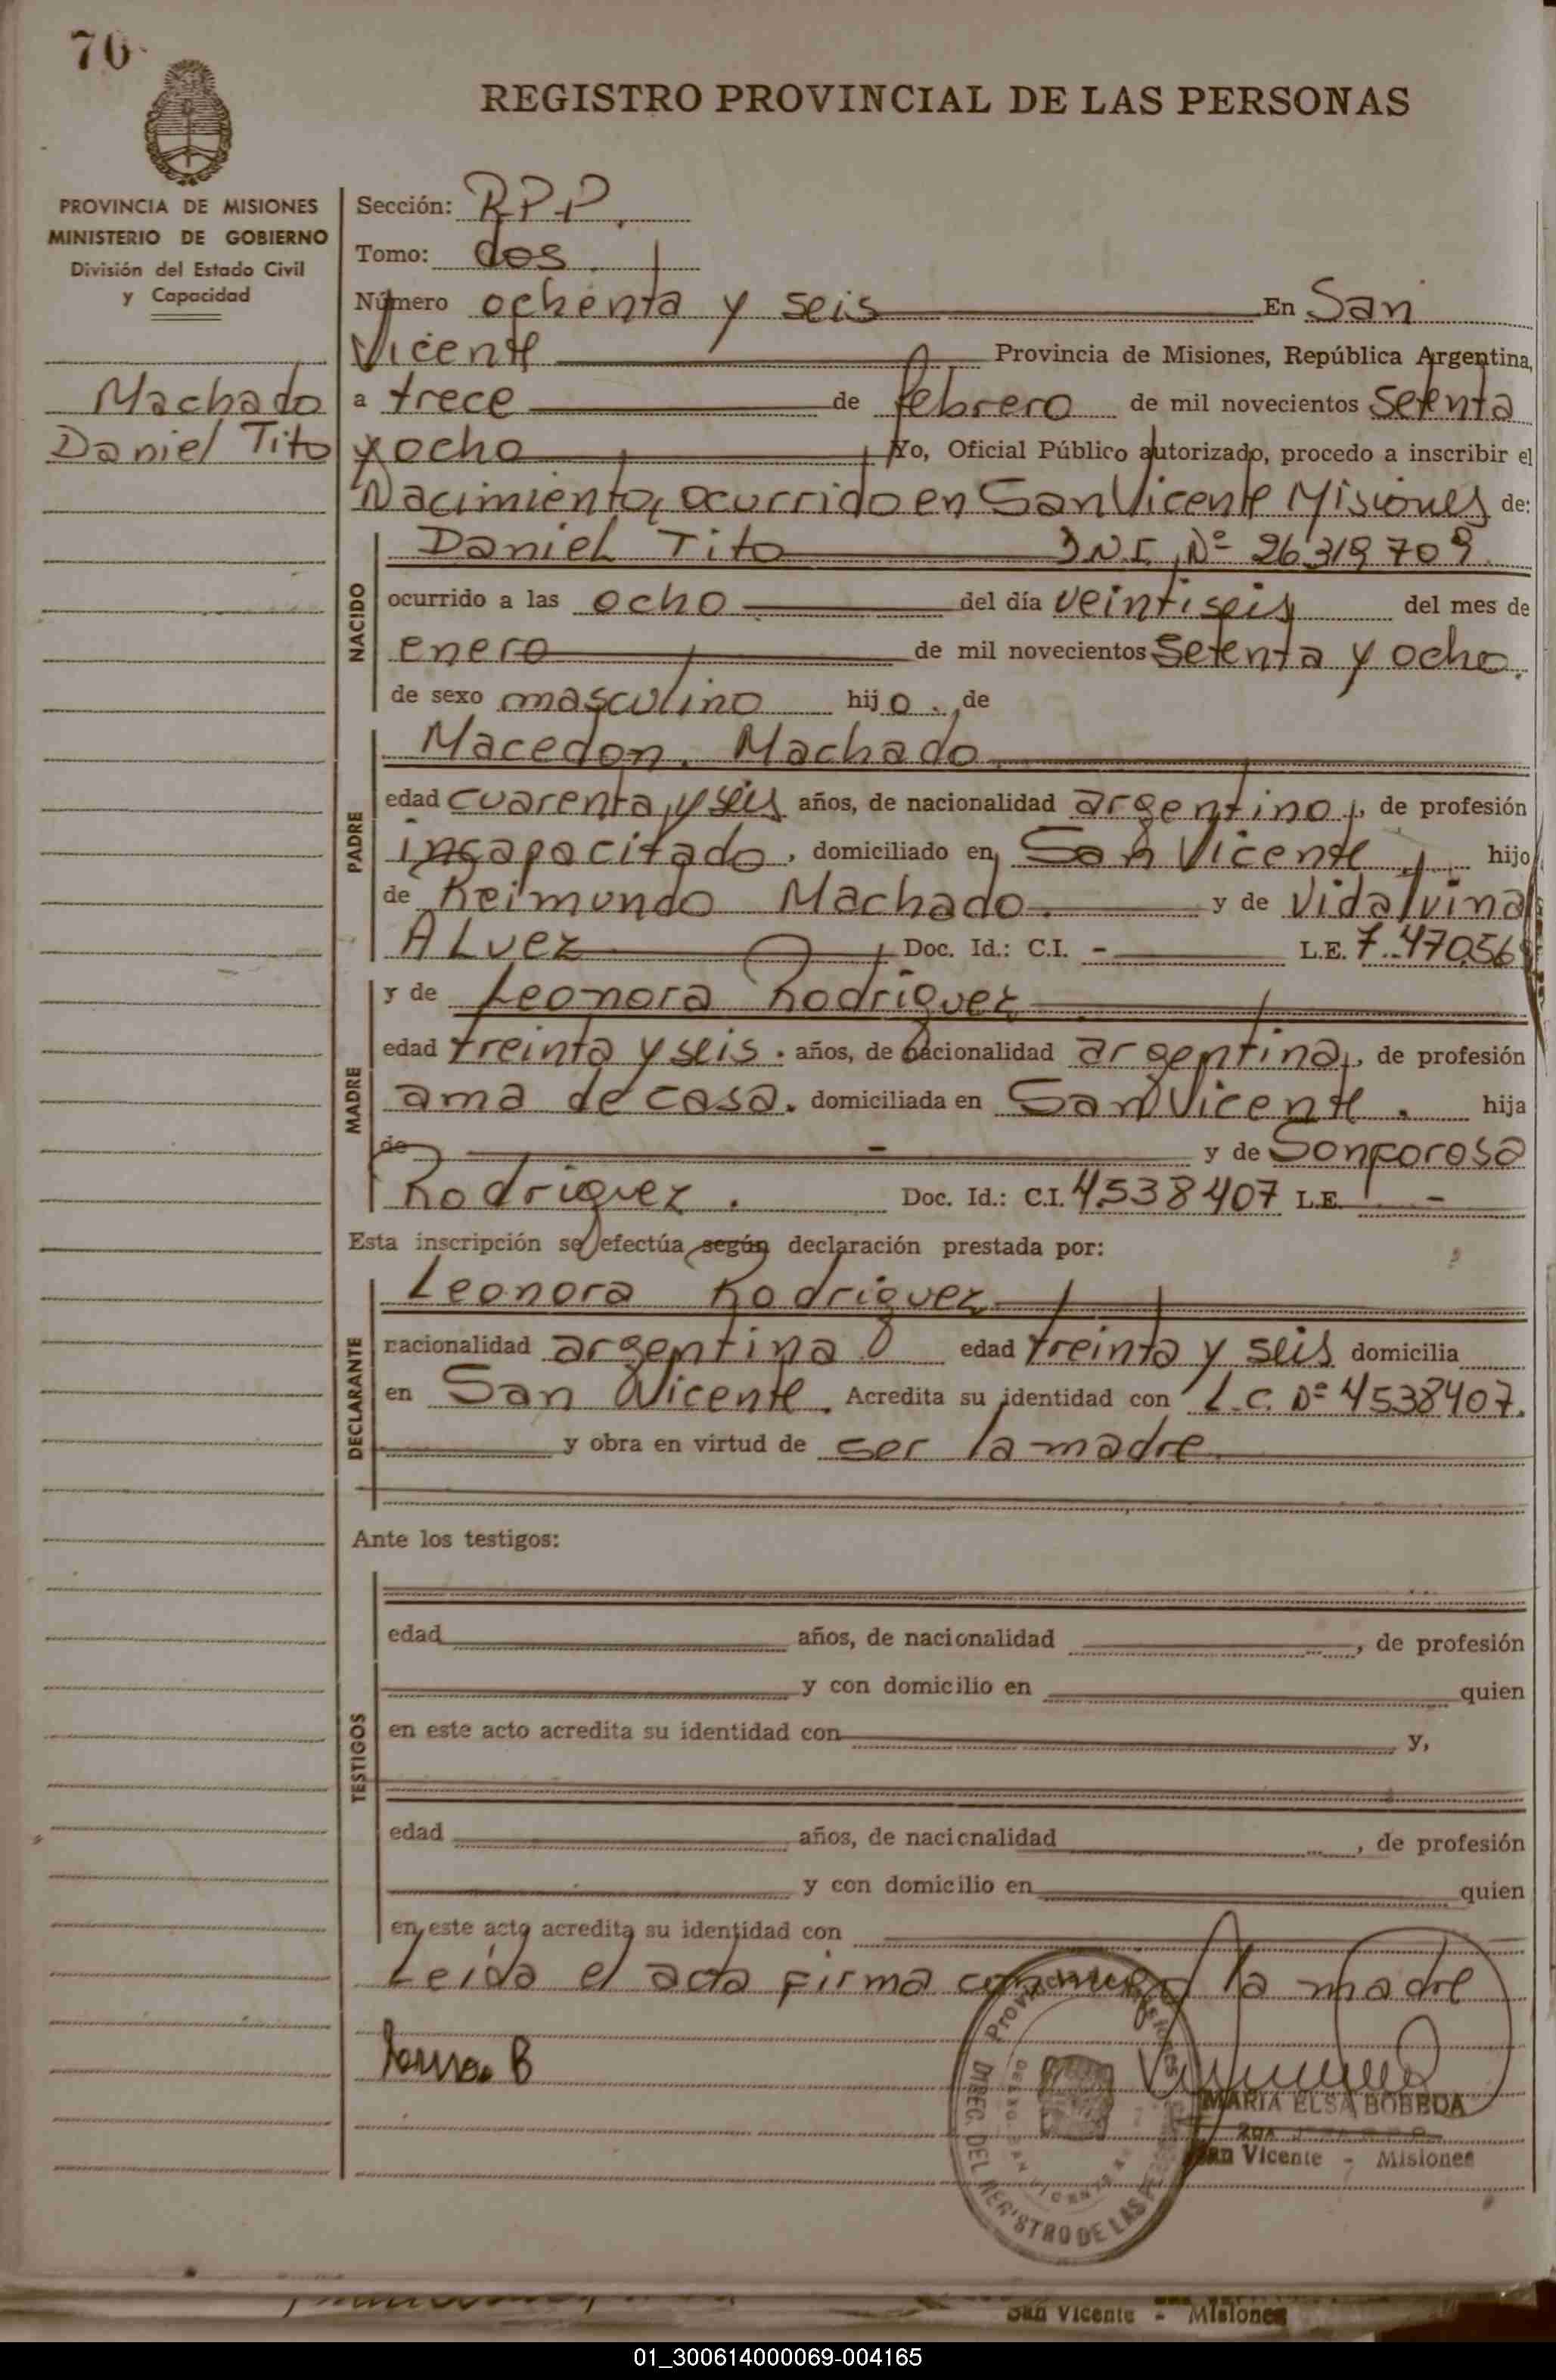 70
REGISTRO PROVINCIAL DE LAS PERSONAS
PROVINCIA DE MISIONES
MINISTERIO DE GOBIERNO
División del Estado Civil
y Capacidad
Machado
Daniel Tito
Sección: R.P.P.
Tomo: dos
Número ochenta y seis En San
Vicente Provincia de Misiones, República Argentina,
a trece de febrero de mil novecientos setenta
y ocho Yo, Oficial Público autorizado, procedo a inscribir el
Nacimiento, ocurrido en San Vicente Misiones de:
NACIDO
Daniel Tito D.N.I. Nº 26319709
ocurrido a las ocho del día veintiseis del mes de
enero de mil novecientos setenta y ocho.
de sexo masculino hijo. de
PADRE
Macedon. Machado
edad cuarenta y seis años, de nacionalidad argentino, de profesión
incapacitado, domiciliado en San Vicente hijo
de Reimundo Machado. y de Vidalvina
ALvez Doc. Id.: C.I. - L.E. 7.47056
MADRE
y de Leonora Rodriguez
edad treinta y seis. años, de nacionalidad argentina, de profesión
ama de casa. domiciliada en San Vicente. hija
de - y de Sonforosa
Rodriguez. Doc. Id.: C.I. 4.538407 L.E. -
Esta inscripción se efectúa según declaración prestada por:
DECLARANTE
Leonora Rodriguez
nacionalidad argentina edad treinta y seis domicilia
en San Vicente. Acredita su identidad con L.C. Nº 4538407.
y obra en virtud de ser la madre
Ante los testigos:
TESTIGOS
edad años, de nacionalidad , de profesión
y con domicilio en quien
en este acto acredita su identidad con y,
edad años, de nacionalidad , de profesión
y con domicilio en quien
en este acto acredita su identidad con
Leida el acta firma conmigo la madre
MARIA ELSA BOBEDA
San Vicente - Misiones
DIREC. DEL REGISTRO DE LAS
San Vicente - Misiones
01_300614000069-004165